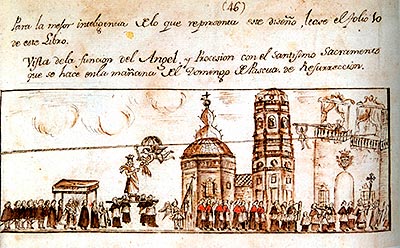 (46)
Para la mejor inteligencia de lo que representa este diseño, lease el folio 10
de este Libro.
Vista de la funcion del Angel, y Procesion con el Santisimo Sacramento
que se hace en la mañana del Domingo de Pascua de Resurreccion.